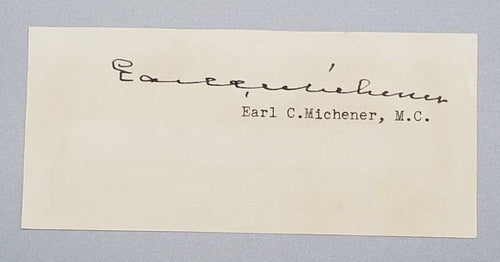 Earl C. Michener
Earl C.Michener, M.C.